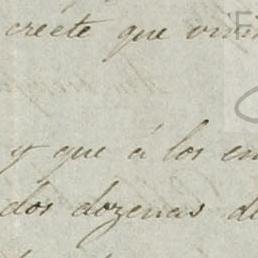 creete que vivi
y que á los en
dos dozenas de